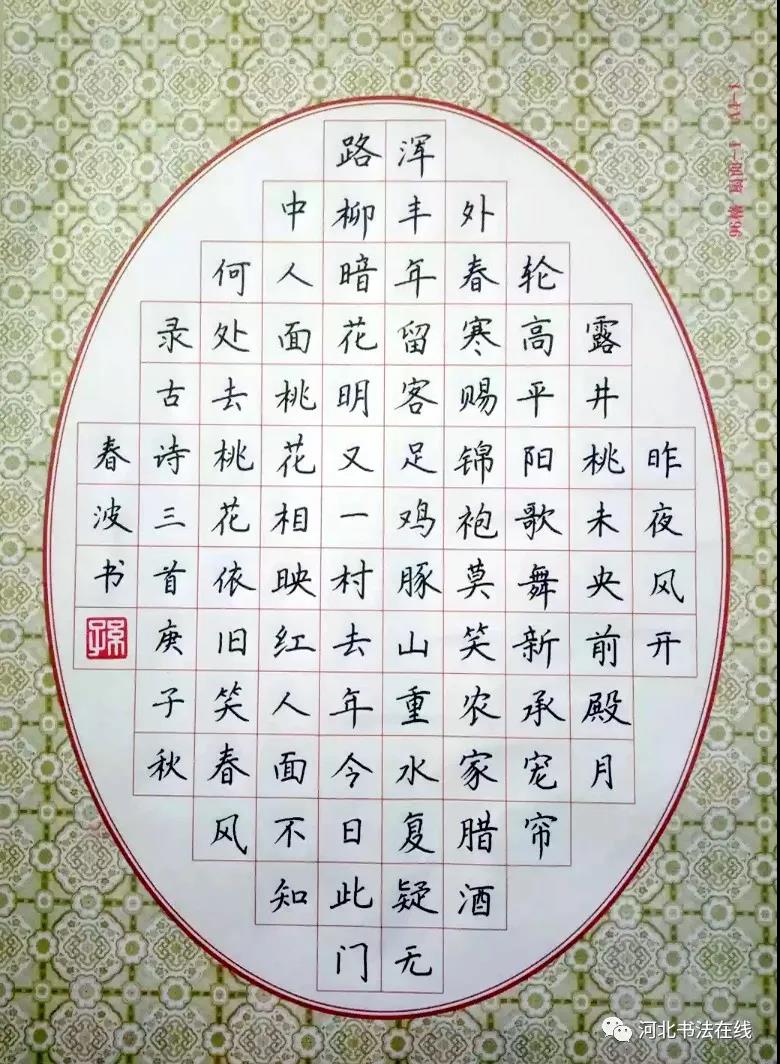 昨夜风开
露井桃未央前殿月
轮高平阳歌舞新承宠帘
外春寒赐锦袍莫笑农家腊酒
浑丰年留客足鸡豚山重水复疑无
路柳暗花明又一村去年今日此门
中人面桃花相映红人面不知
何处去桃花依旧笑春风
录古诗三首庚子秋
春波书
孫
96格 A4-1
河北书法在线